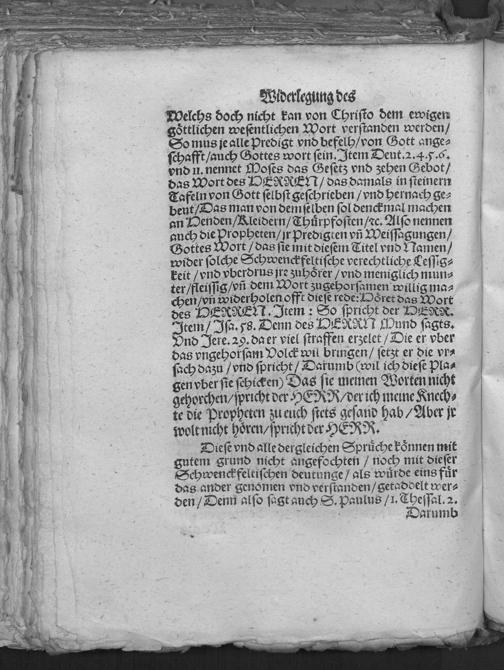 Widerlegung des
Welchs doch nicht kan von Christo dem ewigen
göttlichen wesentlichen Wort verstanden werden/
So mus je alle Predigt vnd befelh/von Gott ange-
schafft/auch Gottes wort sein. Item Deut. 2. 4. 5. 6.
vnd 11. nennet Moses das Gesetz vnd zehen Gebot/
das Wort des HERREN/das damals in steinern
Tafeln von Gott selbst geschrieben/vnd hernach ge-
beut/Das man von demselben sol denckmal machen
an Henden/Kleidern/Thürpfosten/ꝛc. Also nennen
auch die Propheten/jr Predigten vn̄ Weissagungen/
Gottes Wort/das sie mit diesem Titel vnd Namen/
wider solche Schwenckfeltische verechtliche Lessig-
keit/vnd vberdrus jre zuhörer/vnd meniglich mun-
ter/fleissig/vn̄ dem Wort zugehorsamen willig ma-
chen/vn̄ widerholen offt diese rede: Höret das Wort
des HERREN. Item: So spricht der HERR.
Item/Isa. 58. Denn des HERRN Mund sagts.
Vnd Jere. 29. da er viel straffen erzelet/Die er vber
das vngehorsam Volck wil bringen/setzt er die vr-
sach dazu/vnd spricht/Darumb (wil ich diese Pla-
gen vber sie schicken) Das sie meinen Worten nicht
gehorchen/spricht der HERR/der ich meine Knech-
te die Propheten zu euch stets gesand hab/Aber jr
wolt nicht hören/spricht der HERR.
Diese vnd alle dergleichen Sprüche können mit
gutem grund nicht angefochten/noch mit dieser
Schwenckfeltischen deutunge/als würde eins für
das ander genomen vnd verstanden/getaddelt wer-
den/Denn also sagt auch S. Paulus/1. Thessal. 2.
Darumb